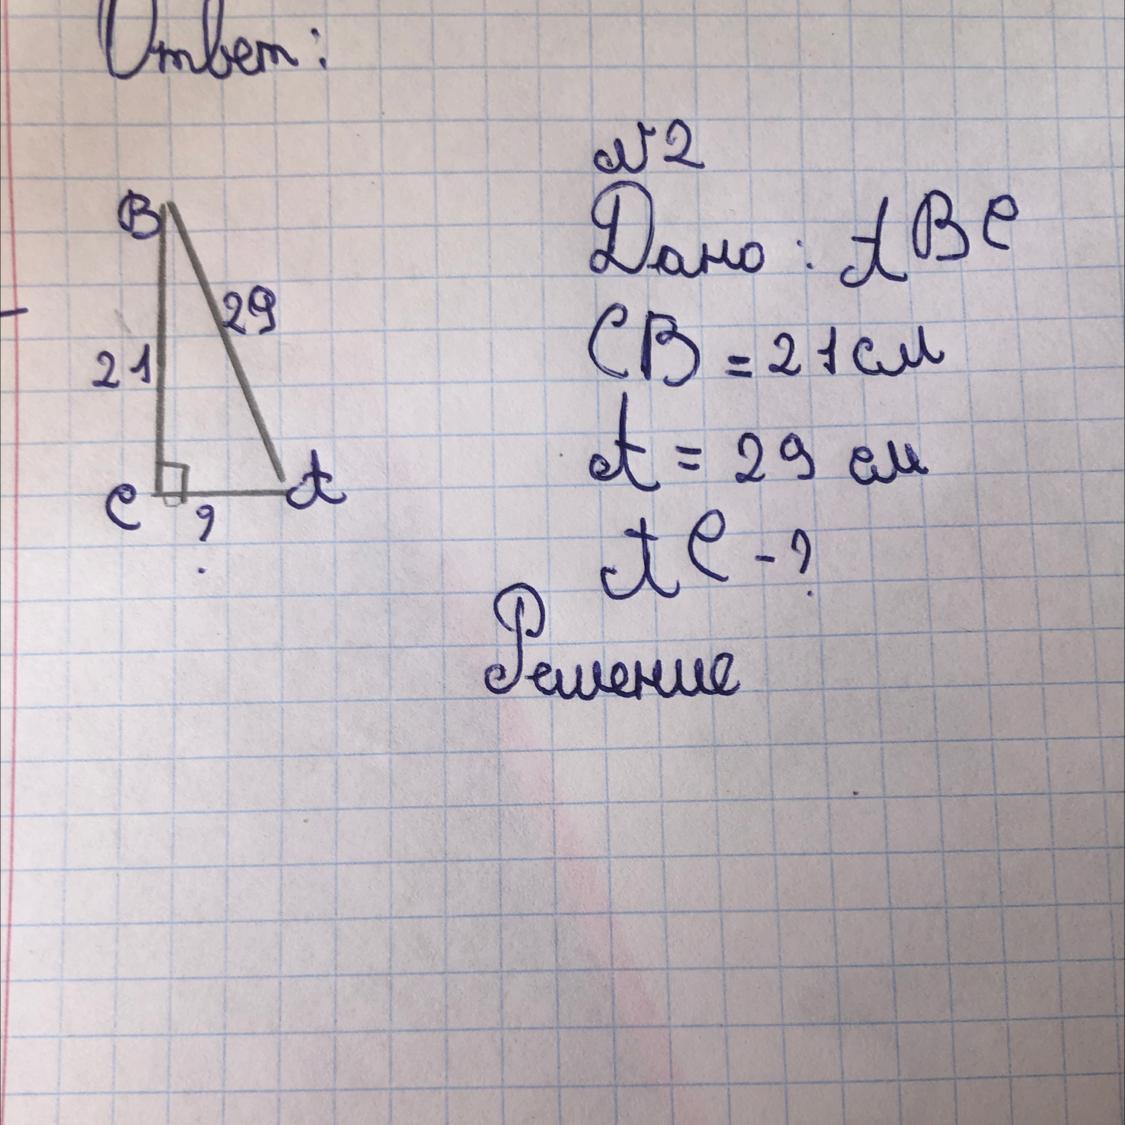 Ответ:
№2
Дано: ABC
CB = 21 см
A = 29 см
AC - ?
Решение
B
29
21
C
?
A